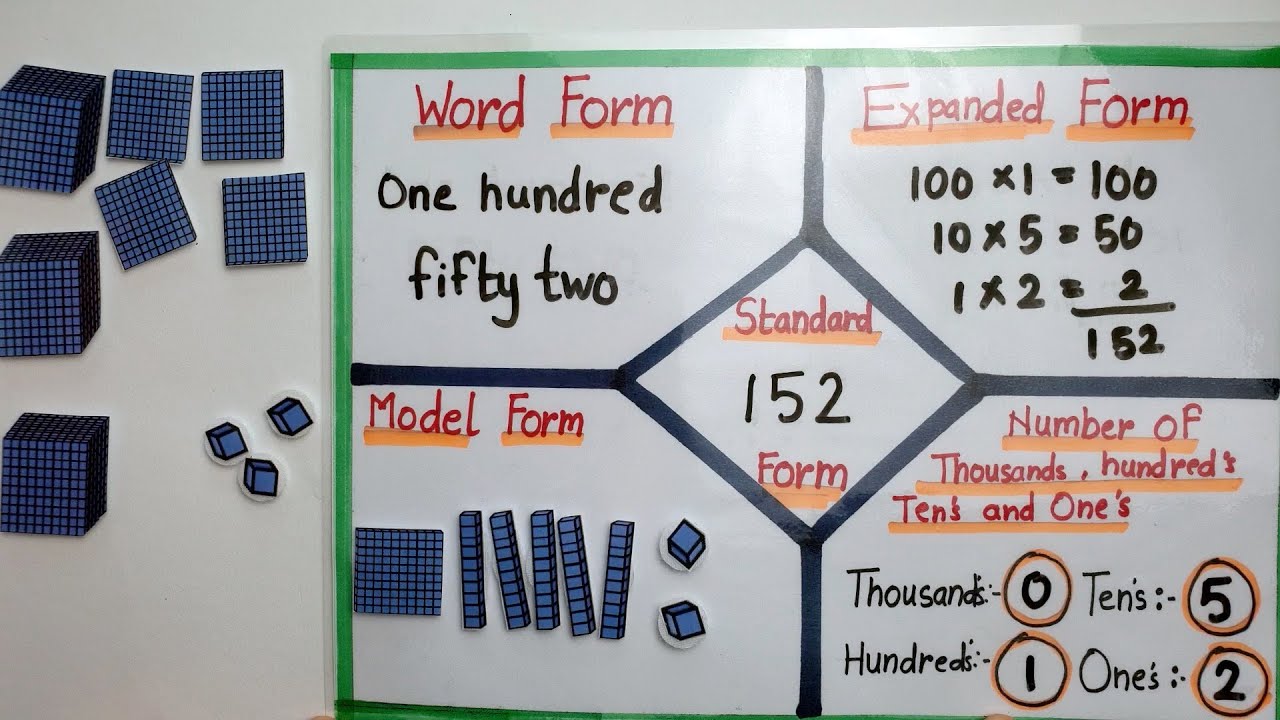 Word Form
One hundred
fifty two
Expanded Form
100 ×1 = 100
10 × 5 = 50
1 × 2 = 2
152
Standard
152
Form
Model Form
Number Of
Thousands, hundred's
Ten's and One's
Thousand's:- 0 Ten's:- 5
Hundred's:- 1 One's:- 2